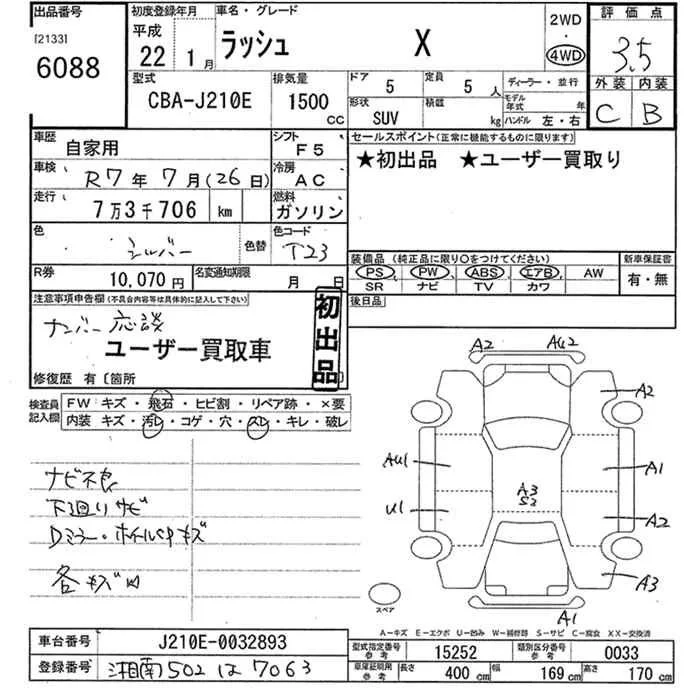 出品番号 初度登録年月 車名・グレード 評価点
[2133] 平成 2WD
6088 22 1月 ラッシュ X 4WD 3.5
型式 排気量 ドア 定員 ディーラー・並行 外装 内装
CBA-J210E 1500 CC 5 5人 モデル年式 年 C B
形状 SUV 積載 kg ハンドル 左・右
車歴 自家用 シフト F5 セールスポイント(正常に機能するものに限ります)
車検 R7年7月(26日) 冷房 AC ★初出品 ★ユーザー買取り
走行 7万3千706 km 燃料 ガソリン
色 シルバー 色替 色コード T23
装備品(純正品に限り○をつけてください) 新車保証書
R券 10,070円 名変通知期限 月 日 PS PW ABS エアB AW 有・無
SR ナビ TV カワ
注意事項申告欄(不具合内容等は具体的に記入して下さい) 後日品
ナンバー応談 初出品
ユーザー買取車
修復歴 有〔箇所 〕
検査員記入欄 FW キズ・飛石・ヒビ割・リペア跡・×要
内装 キズ・汚レ・コゲ・穴・スレ・キレ・破レ
A2 AU2
A2
AU1 A1
A3
S2
U1 A2
A3
A1
スペア
ナビ不良
下廻りサビ
Dミラー・ホイルキャキズ
各キズW
A-キズ E-エクボ U-凹み W-補修跡 S-サビ C-腐食 XX-交換済
車台番号 J210E-0032893 型式指定番号 参考 15252 類別区分番号 参考 0033
登録番号 湘南502は7063 車庫証明用 参考 長さ 400cm 幅 169cm 高さ 170cm